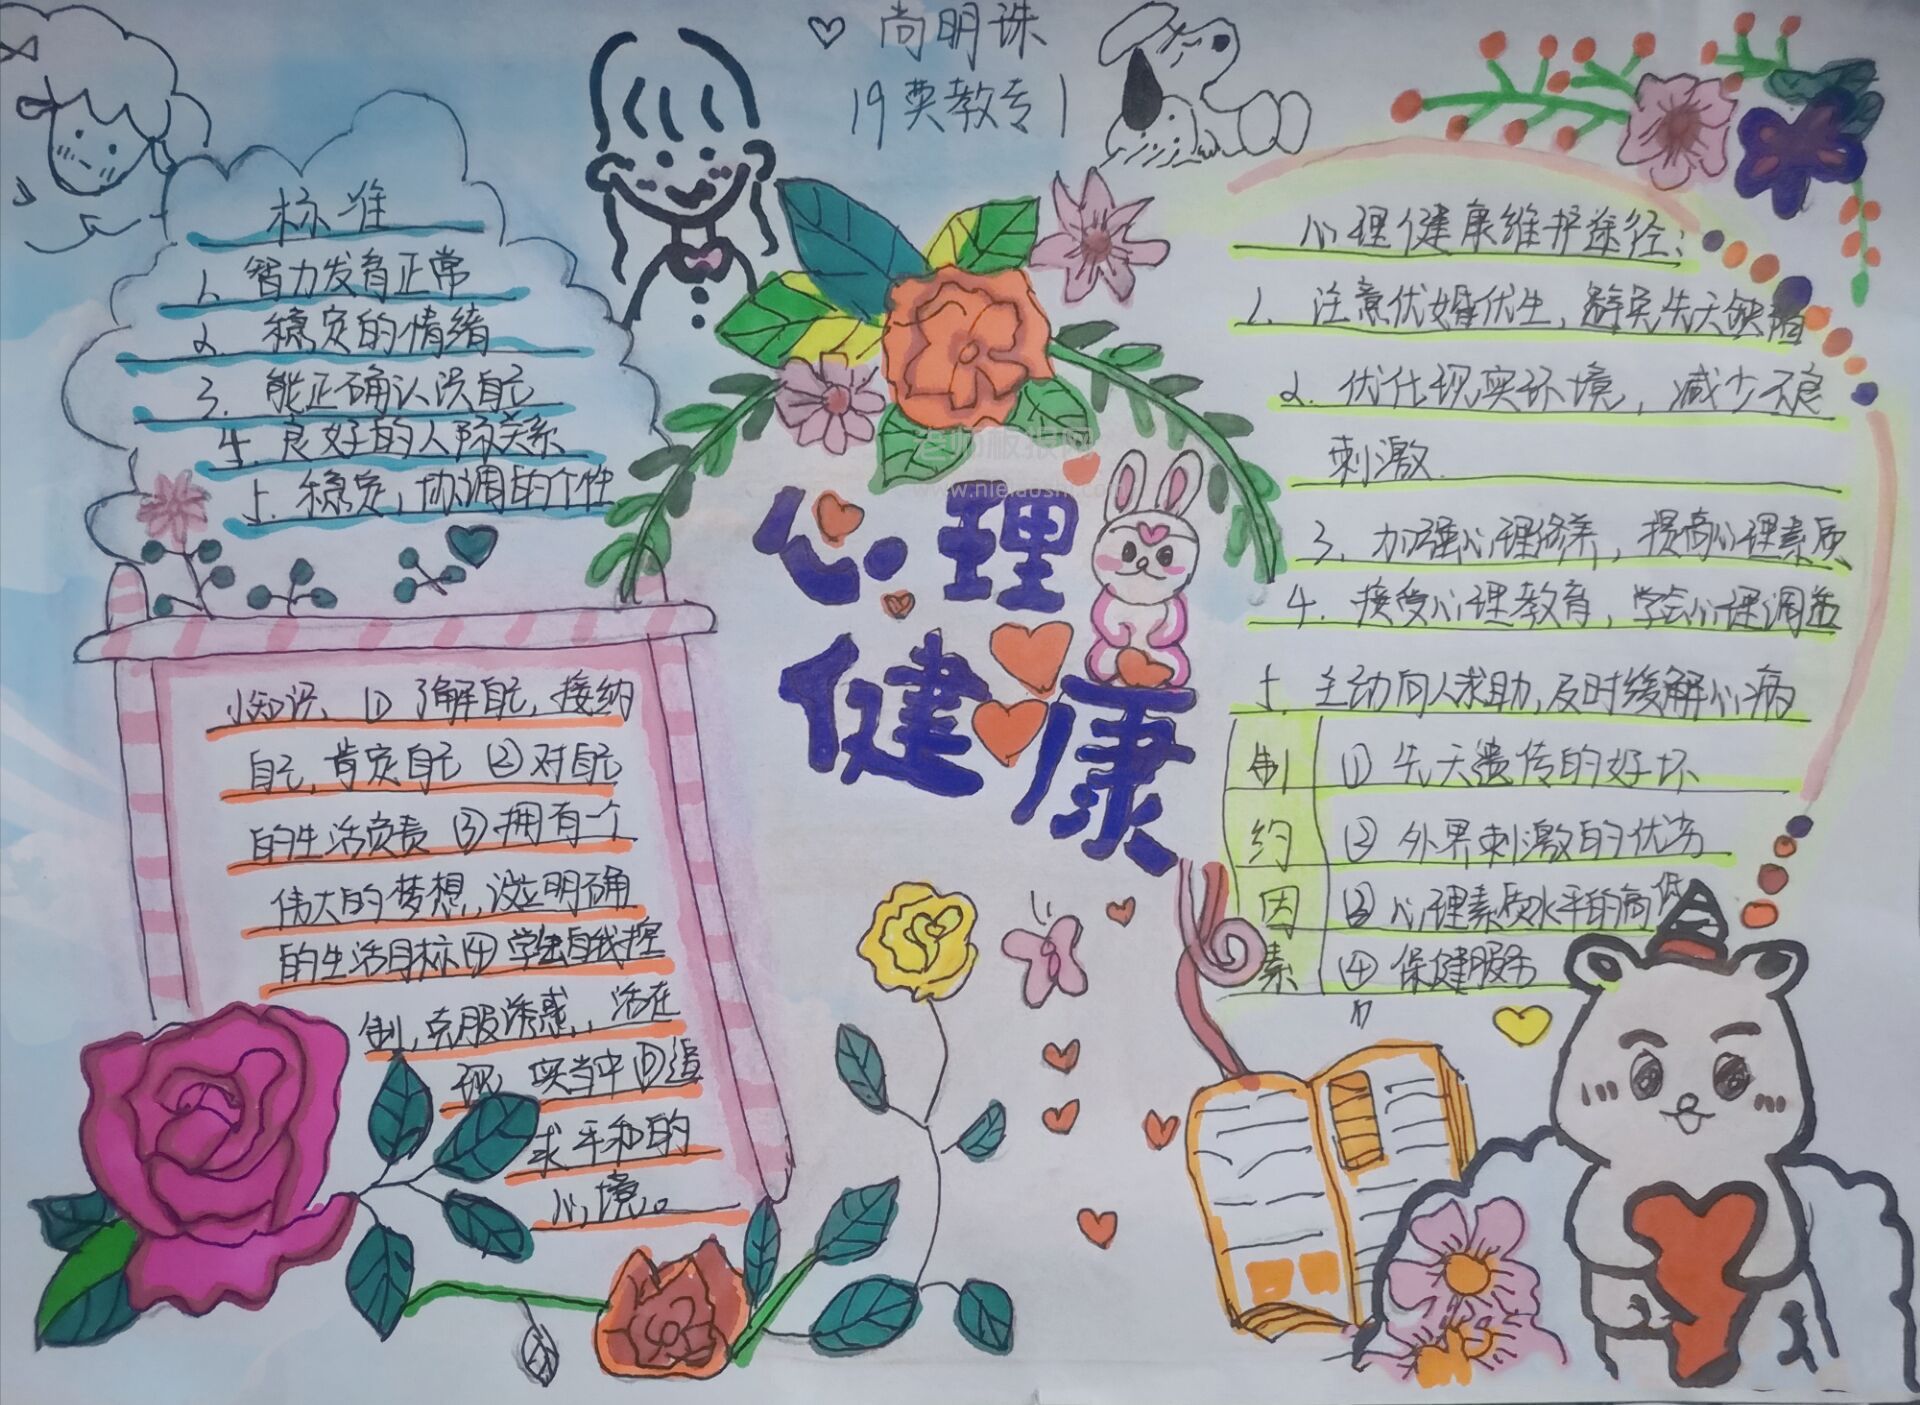 尚明珠
19英教专1
标准
1. 智力发育正常
2. 稳定的情绪
3. 能正确认识自己
4. 良好的人际关系
5. 稳定，协调的个性
心理健康
小知识、① 了解自己，接纳
自己，肯定自己 ② 对自己
的生活负责 ③ 拥有一个
伟大的梦想，设立明确
的生活目标 ④ 学会自我控
制，克服诱惑，活在
现实当中 ⑤ 追
求平和的
心境。
心理健康维护途径：
1. 注意优婚优生，避免先天缺陷
2. 优化现实环境，减少不良
刺激.
3. 加强心理修养，提高心理素质
4. 接受心理教育，学会心理调适
5. 主动向人求助，及时缓解心病
制约因素
① 先天遗传的好坏
② 外界刺激的优劣
③ 心理素质水平的高低
④ 保健服务
老师板报网